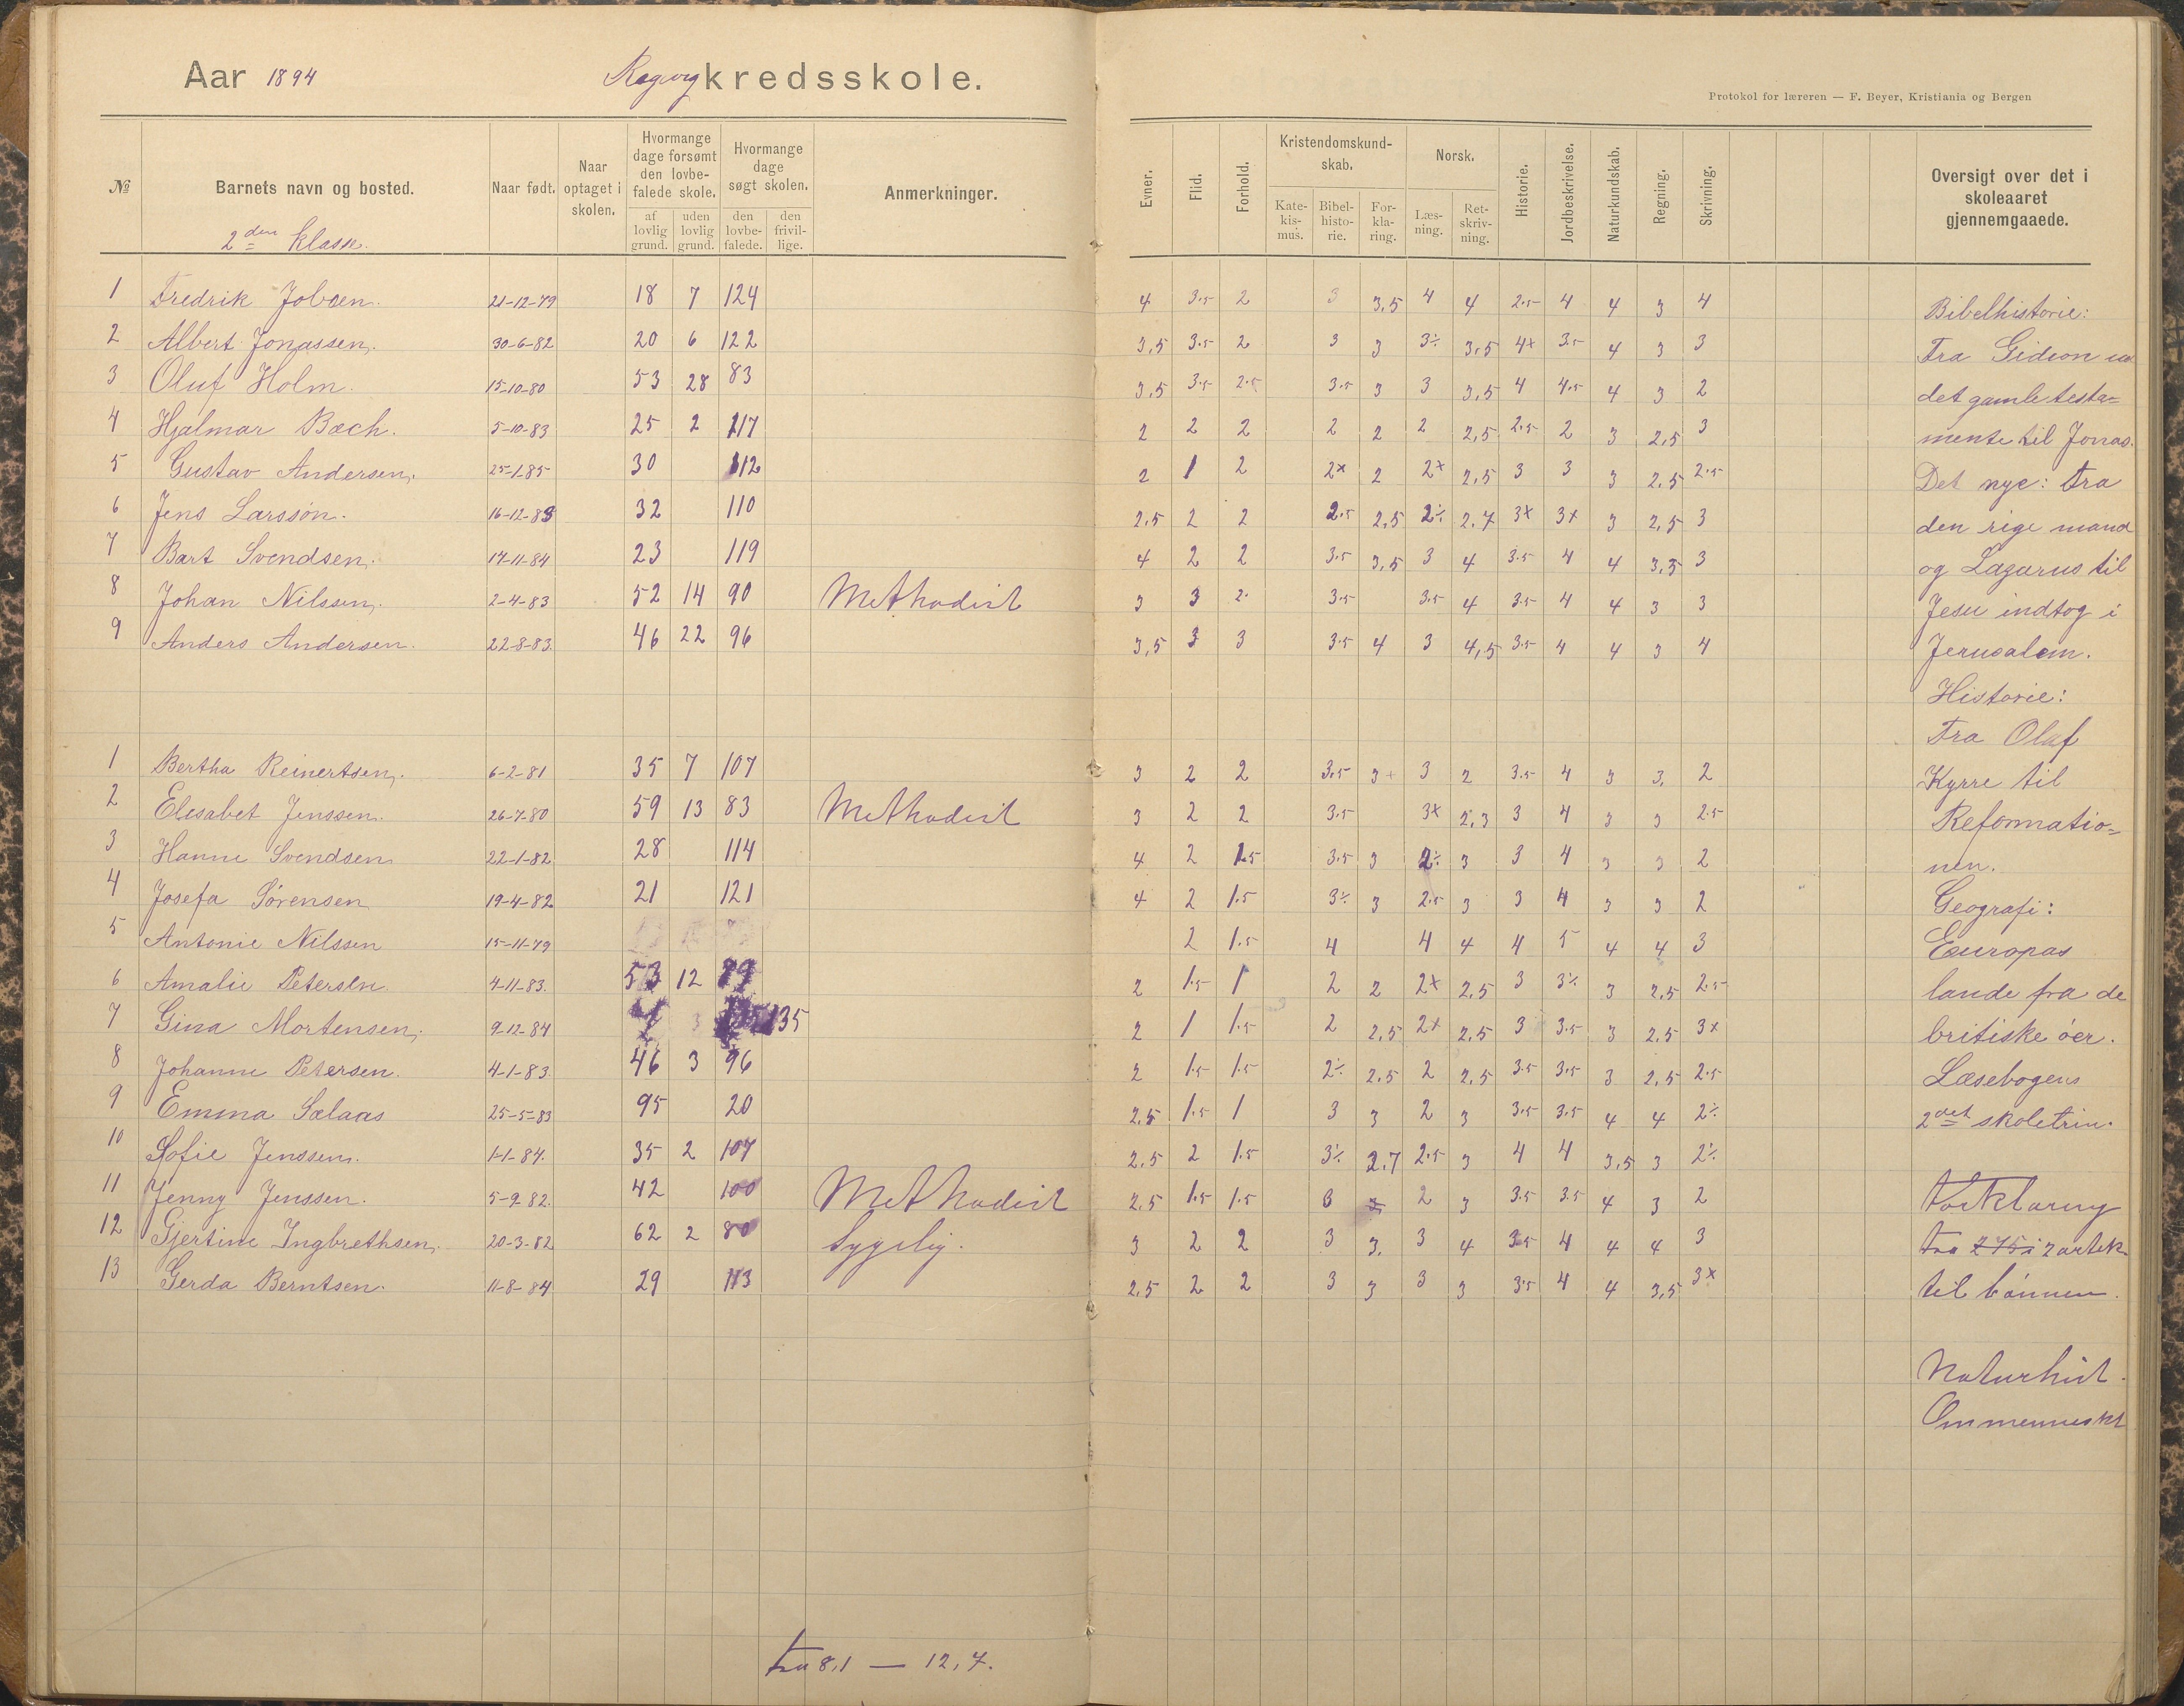 Aar 1894 kredsskole.
Protokol for læreren — F. Beyer, Kristiania og Bergen
№ Barnets navn og bosted. Naar født. Naar optaget i skolen. Hvormange dage forsømt den lovbefalede skole. af lovlig grund. uden lovlig grund. Hvormange dage søgt skolen. den lovbefalede. den frivillige. Anmerkninger.
Evner. Flid. Forhold. Kristendomskundskab. Katekismus. Bibelhistorie. Forklaring. Norsk. Læsning. Retskrivning. Historie. Jordbeskrivelse. Naturkundskab. Regning. Skrivning. Oversigt over det i skoleaaret gjennemgaaede.
2den klasse.
1 Fredrik 21-12-79 18 7 124 4 3.5 2 3 3,5 4 4 2.5 4 4 3 4
2 Albert Jonassen. 30-6-82 20 6 122 3,5 3.5 2 3 3 3÷ 3,5 4+ 3.5 4 3 3
3 Oluf Holm. 15-10-80 53 28 83 3,5 3.5 2.5 3.5 3 3 3,5 4 4.5 4 3 2
4 Hjalmar Bach. 5-10-83 25 2 117 2 2 2 2 2 2 2,5 2.5 2 3 2,5 3
5 Gustav Andersen. 25-1-85 30 112 2 1 2 2+ 2 2+ 2,5 3 3 3 2,5 2.5
6 Jens Larsson. 16-12-83 32 110 2,5 2 2 2.5 2,5 2÷ 2,7 3+ 3+ 3 2,5 3
7 Bart Svendsen. 17-11-84 23 119 4 2 2 3.5 3,5 3 4 3.5 4 4 3,5 3
8 Johan Nilssen. 2-4-83 52 14 90 Methodist 3 3 2. 3.5 3.5 4 3.5 4 4 3 3
9 Anders Andersen. 22-8-83. 46 22 96 3,5 3 3 3.5 4 3 4,5 3.5 4 4 3 4
1 Bertha Reinertsen. 6-2-81 35 7 107 3 2 2 3.5 3+ 3 2 3.5 4 3 3. 2
2 Elesabet Jenssen. 26-7-80 59 13 83 Methodist 3 2 2 3.5 3+ 2,3 3 4 3 3 2.5
3 Hanne Svendsen 22-1-82 28 114 4 2 1.5 3.5 3 2÷ 3 3 4 3 3 2
4 Josefa Sørensen 19-4-82 21 121 4 2 1.5 3÷ 3 2.5 3 3 4 3 3 2
5 Antonie Nilssen 15-11-79 2 1.5 4 4 4 4 5 4 4 3
6 Amalie Petersen 4-11-83. 53 12 2 1.5 1 2 2 2+ 2,5 3 3÷ 3 2,5 2.5
7 Gina Mortensen. 9-12-84 3 135 2 1 1.5 2 2,5 2+ 2,5 3 3.5 3 2,5 3+
8 Johanne Petersen. 4-1-83. 46 3 96 2 1.5 1.5 2÷ 2,5 2 2,5 3.5 3.5 3 2,5 2.5
9 Emma Sælaas 25-5-83 95 20 2,5 1.5 1 3 3 2 3 3.5 3.5 4 4 2÷
10 Sofie Jenssen. 1-1-84. 35 2 107 2,5 2 1.5 3÷ 2,7 2.5 3 4 4 3,5 3 2÷
11 Jenny Jenssen. 5-9 82. 42 100 Methodist 2,5 1.5 1.5 3 2 3 3.5 3.5 4 3 2
12 Gjertine Ingbrethsen. 20-3-82 62 2 80 Sygelig. 3 2 2 3 3. 3 4 3.5 4 4 4 3
13 Gerda Berntsen. 11-8-84 29 113 2,5 2 2 3 3 3 3 3.5 4 4 3,5 3+
fra 8,1 — 12,7.
Bibelhistorie:
Fra Gideon
det gamle testa=
mente til Jonas.
Det nye: fra
den rige mand
og Lazarus til
Jesu indtog i
Jerusalem.
Historie:
Fra Olaf
Kyrre til
Reformatio=
nen.
Geografi:
Europas
lande fra de
britiske øer.
Læsebogens
2det skoletrin.
Forklaring
fra 2 artik
til bønnen.
Naturhist.
Om mennesket